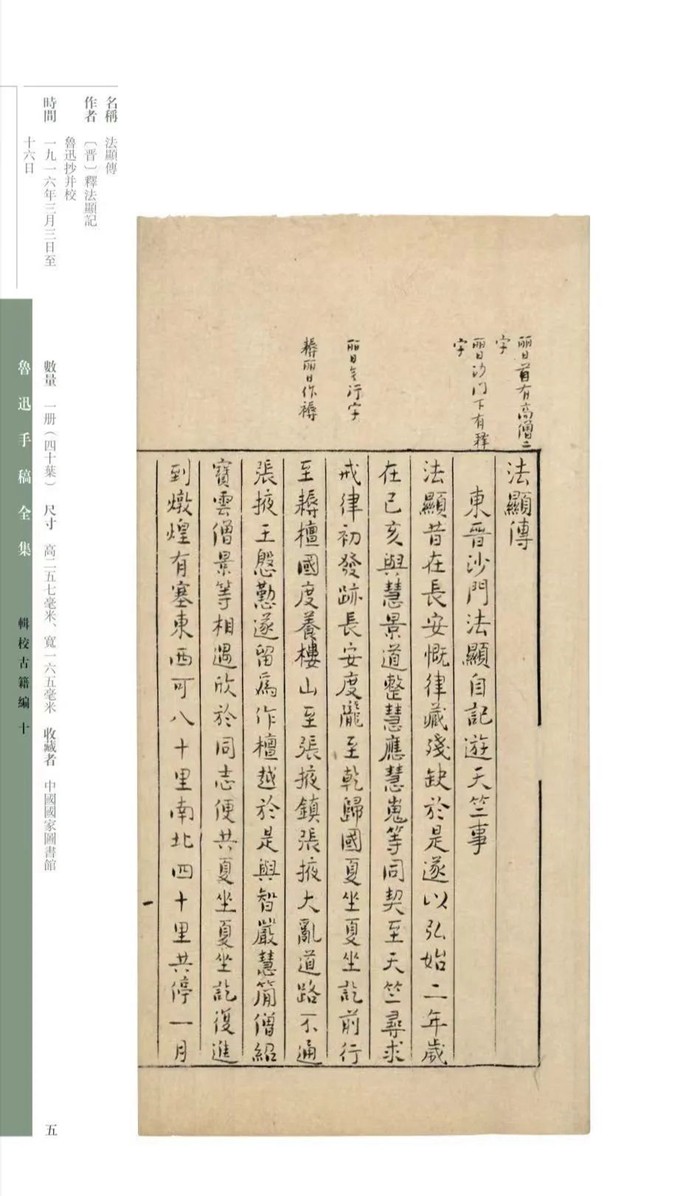 丽日首有高僧二
字
丽日沙門下有釋
字
丽日无行字
耨丽日作褥
法顯傳
東晉沙門法顯自記遊天竺事
法顯昔在長安慨律藏殘缺於是遂以弘始二年歲
在己亥與慧景道整慧應慧嵬等同契至天竺尋求
戒律初發跡長安度隴至乾歸國夏坐夏坐訖前行
至耨檀國度養樓山至張掖鎮張掖大亂道路不通
張掖王慇懃遂留爲作檀越於是與智嚴慧簡僧紹
寶雲僧景等相遇欣於同志便共夏坐夏坐訖復進
到燉煌有塞東西可八十里南北四十里共停一月
一
名稱 法顯傳
作者 〔晋〕釋法顯記
魯迅抄并校
時間 一九一六年三月三日至
十六日
數量 一册（四十葉） 尺寸 高二五七毫米、寬一六五毫米 收藏者 中國國家圖書館
魯迅手稿全集 輯校古籍編 十
五